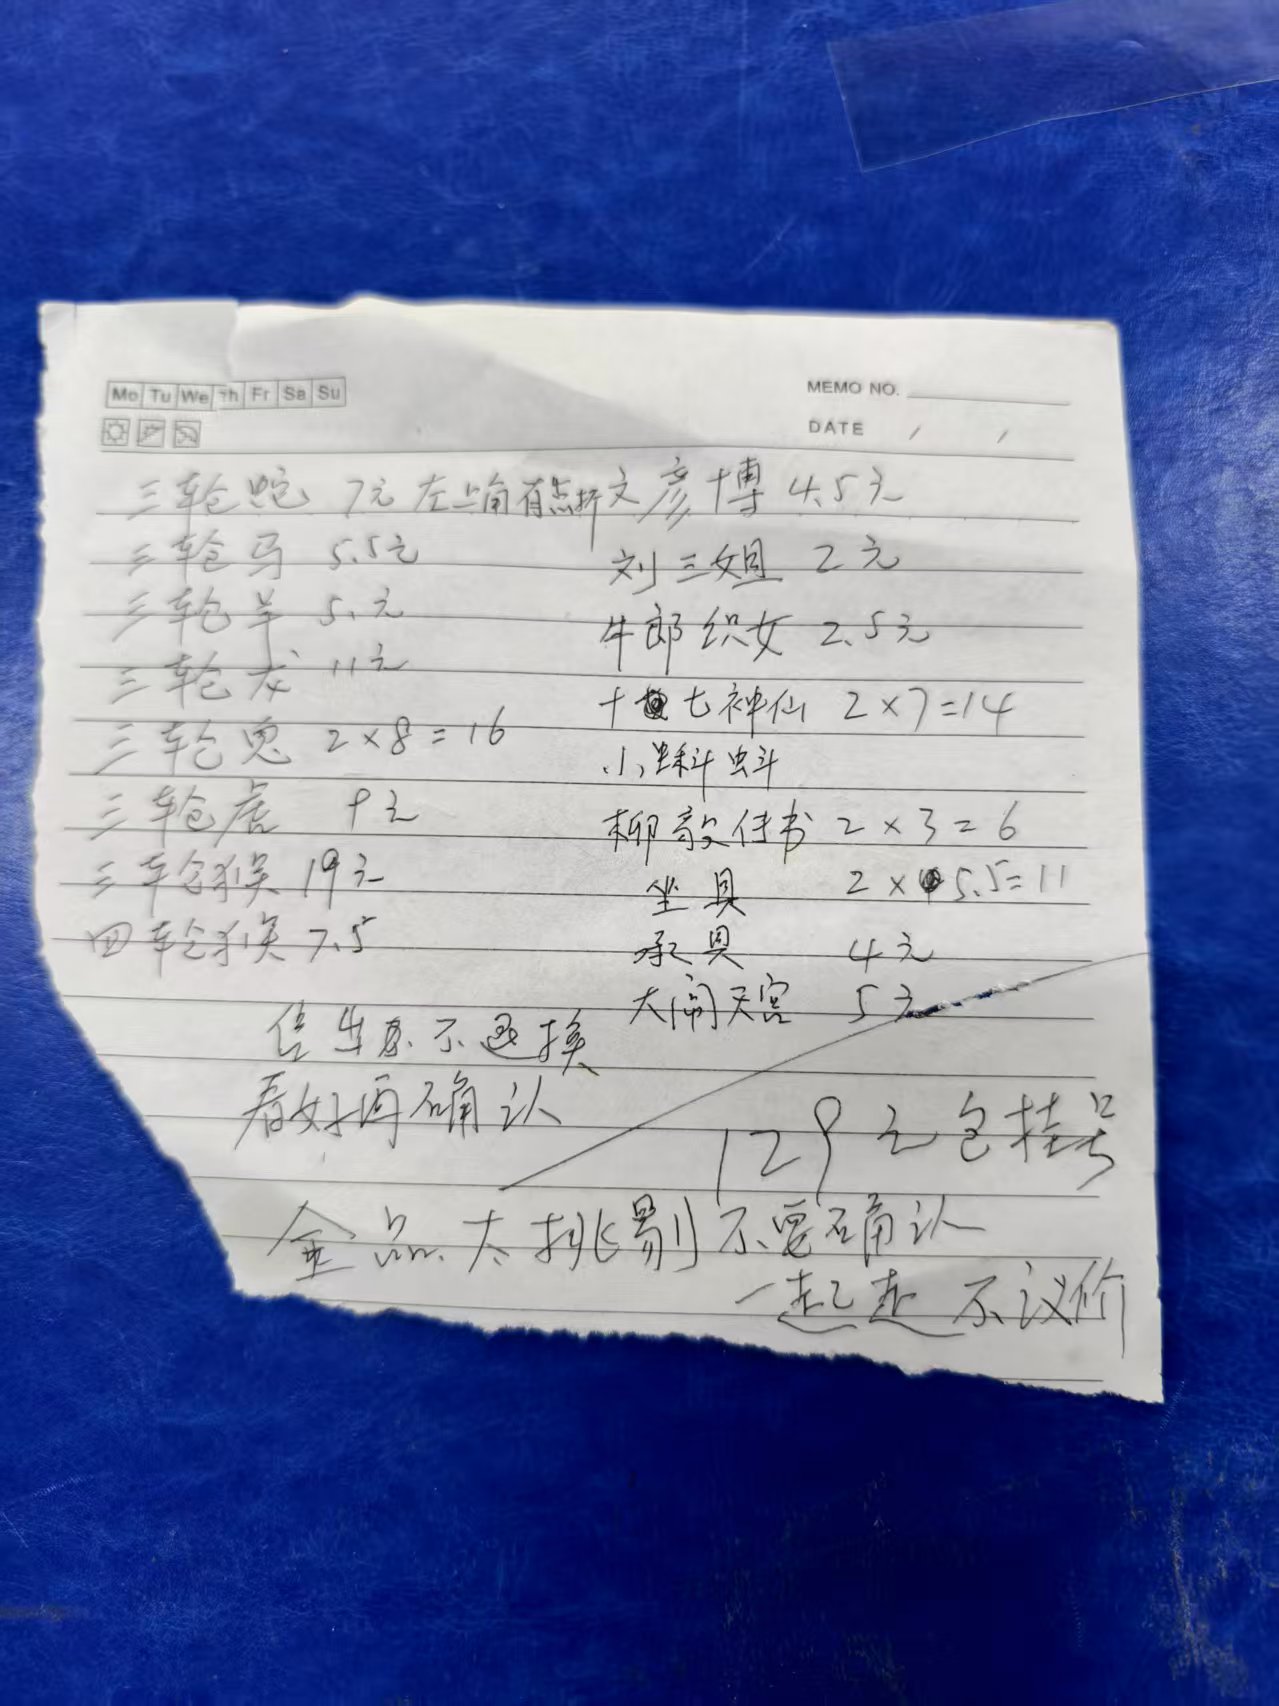 Mo Tu We Th Fr Sa Su
MEMO NO.
DATE / /
三轮蛇 7元 左上角有点折
三轮马 5.5元
三轮羊 5.元
三轮龙 11元
三轮兔 2×8=16
三轮虎 9元
三轮猴 19元
四轮猴 7.5
文彦博 4.5元
刘三姐 2元
牛郎织女 2.5元
十七神仙 2×7=14
小蝌蚪
柳毅传书 2×3=6
坐具 2×5.5=11
承具 4元
大闹天宫 5元
售出不退换
看好再确认
129元包挂号
全品.太挑剔不要确认
一起走 不议价